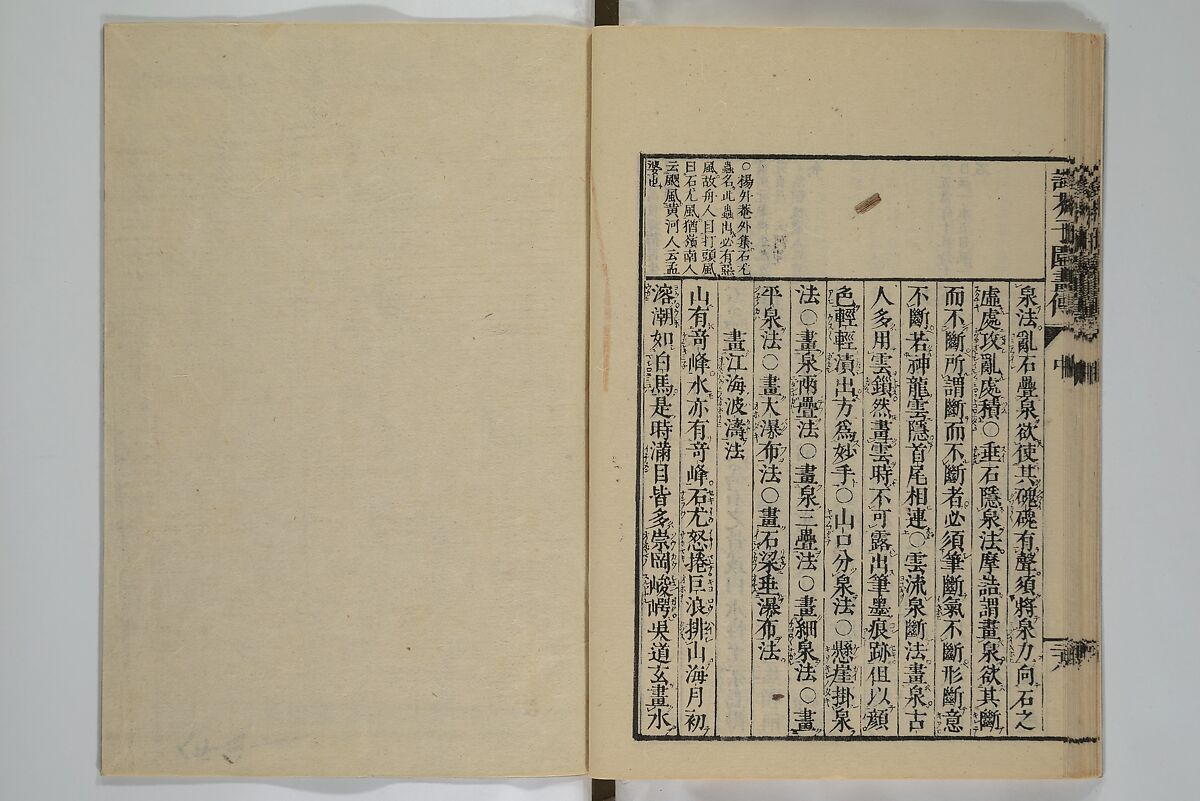 泉法亂石疊泉欲使其磈磈有聲須將泉力向石之
虛處攻亂處積〇垂石隱泉法摩詰謂畫泉欲其斷
而不斷所謂斷而不斷者必須筆斷氣不斷形斷意
不斷若神龍雲隱首尾相連〇雲流泉斷法畫泉古
人多用雲鎖然畫雲時不可露出筆墨痕跡但以顏
色輕輕漬出方為妙手〇山口分泉法〇懸崖掛泉
法〇畫泉兩疊法〇畫泉三疊法〇畫細泉法〇畫
平泉法〇畫大瀑布法〇畫石梁垂瀑布法
畫江海波濤法
山有竒峰水亦有竒峰石尤怒捲巨浪排山海月初
溶潮如白馬是時滿目皆多崇岡峻崿吳道玄畫水
〇楊外菴外集石尤
蟲名此蟲出必有惡
風故舟人目打頭風
曰石尤風猶嶺南人
云颶風黃河人云孟
婆也
芥子園畫傳
中